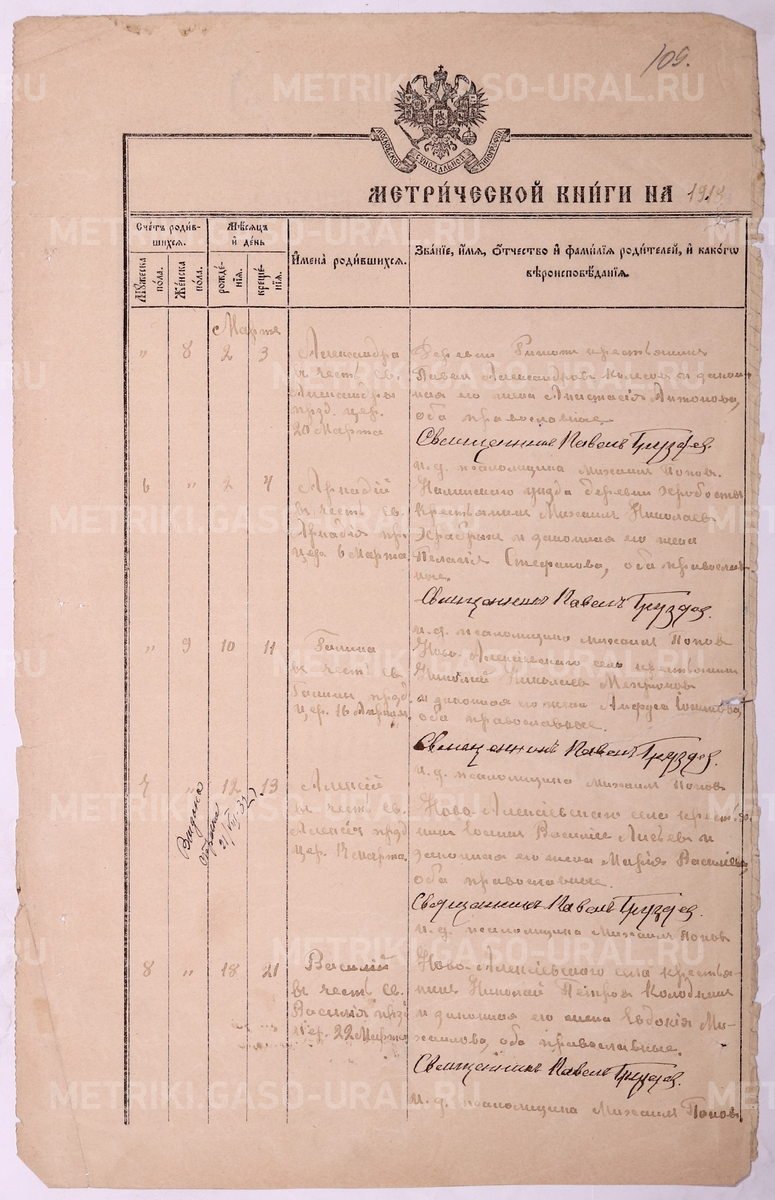 109.
МОСКОВСКОЙ СѴНОДАЛЬНОЙ ТИПОГРАФІИ
МЕТРИ́ЧЕСКОЙ КНИ́ГИ НА 191
Сче́тъ роди́в-
шихся.
Мѣсяцъ
и день
Мужеска пола.
Же́нска по́ла.
рожде́-
нія.
креще́-
нія.
Имена роди́вшихся.
Зва́ніе, и́мя, о́тчество и фами́лія роди́телей, и како́гѡ
вѣроисповѣ́данія.
Марта
" 8 2 3
Александра
въ честь св.
Александры
прзд. цер.
20 Марта
Деревни крестьянинъ
Павелъ Александровъ и закон-
ная его жена Анастасія Антонова,
оба православные.
Священникъ Павелъ Груздев.
и. д. псаломщика Михаилъ Попов.
6 " 2 4
Аркадій
въ честь св.
Аркадія пр.
цер. 6 Марта
уѣзда деревни
крестьянинъ Михаилъ Николаев
Храбрых и законная его жена
Пелагія Стефанова, оба православ-
ные.
Священникъ Павелъ Груздев.
и. д. псаломщика Михаилъ Попов
" 9 10 11
Галина
въ честь св.
Галины прзд.
цер. 16 Апрѣля
Ново-Алексѣевского села крестьянин
Николай Николаев
и законная его жена
оба православные.
Священникъ Павелъ Груздев.
и. д. псаломщика Михаилъ Попов
7 " 12 13
Выдана
справка
Алексій
въ честь св.
Алексія прзд
цер. 17 Марта
Ново-Алексѣевского села кресть-
янин Василіев и
законная его жена Марія Василіева,
оба православные.
Священникъ Павелъ Груздев.
и. д. псаломщика Михаилъ Попов
8 " 18 21
Василій
въ честь св.
Василія празд
цер. 22 Марта
Ново-Алексѣевского села крестья-
нинъ Николай Петров Колодкин
и законная его жена Евдокія Ми-
хаилова, оба православные.
Священникъ Павелъ Груздев.
и. д. псаломщика Михаилъ Попов.
METRIKI.GASO-URAL.RU